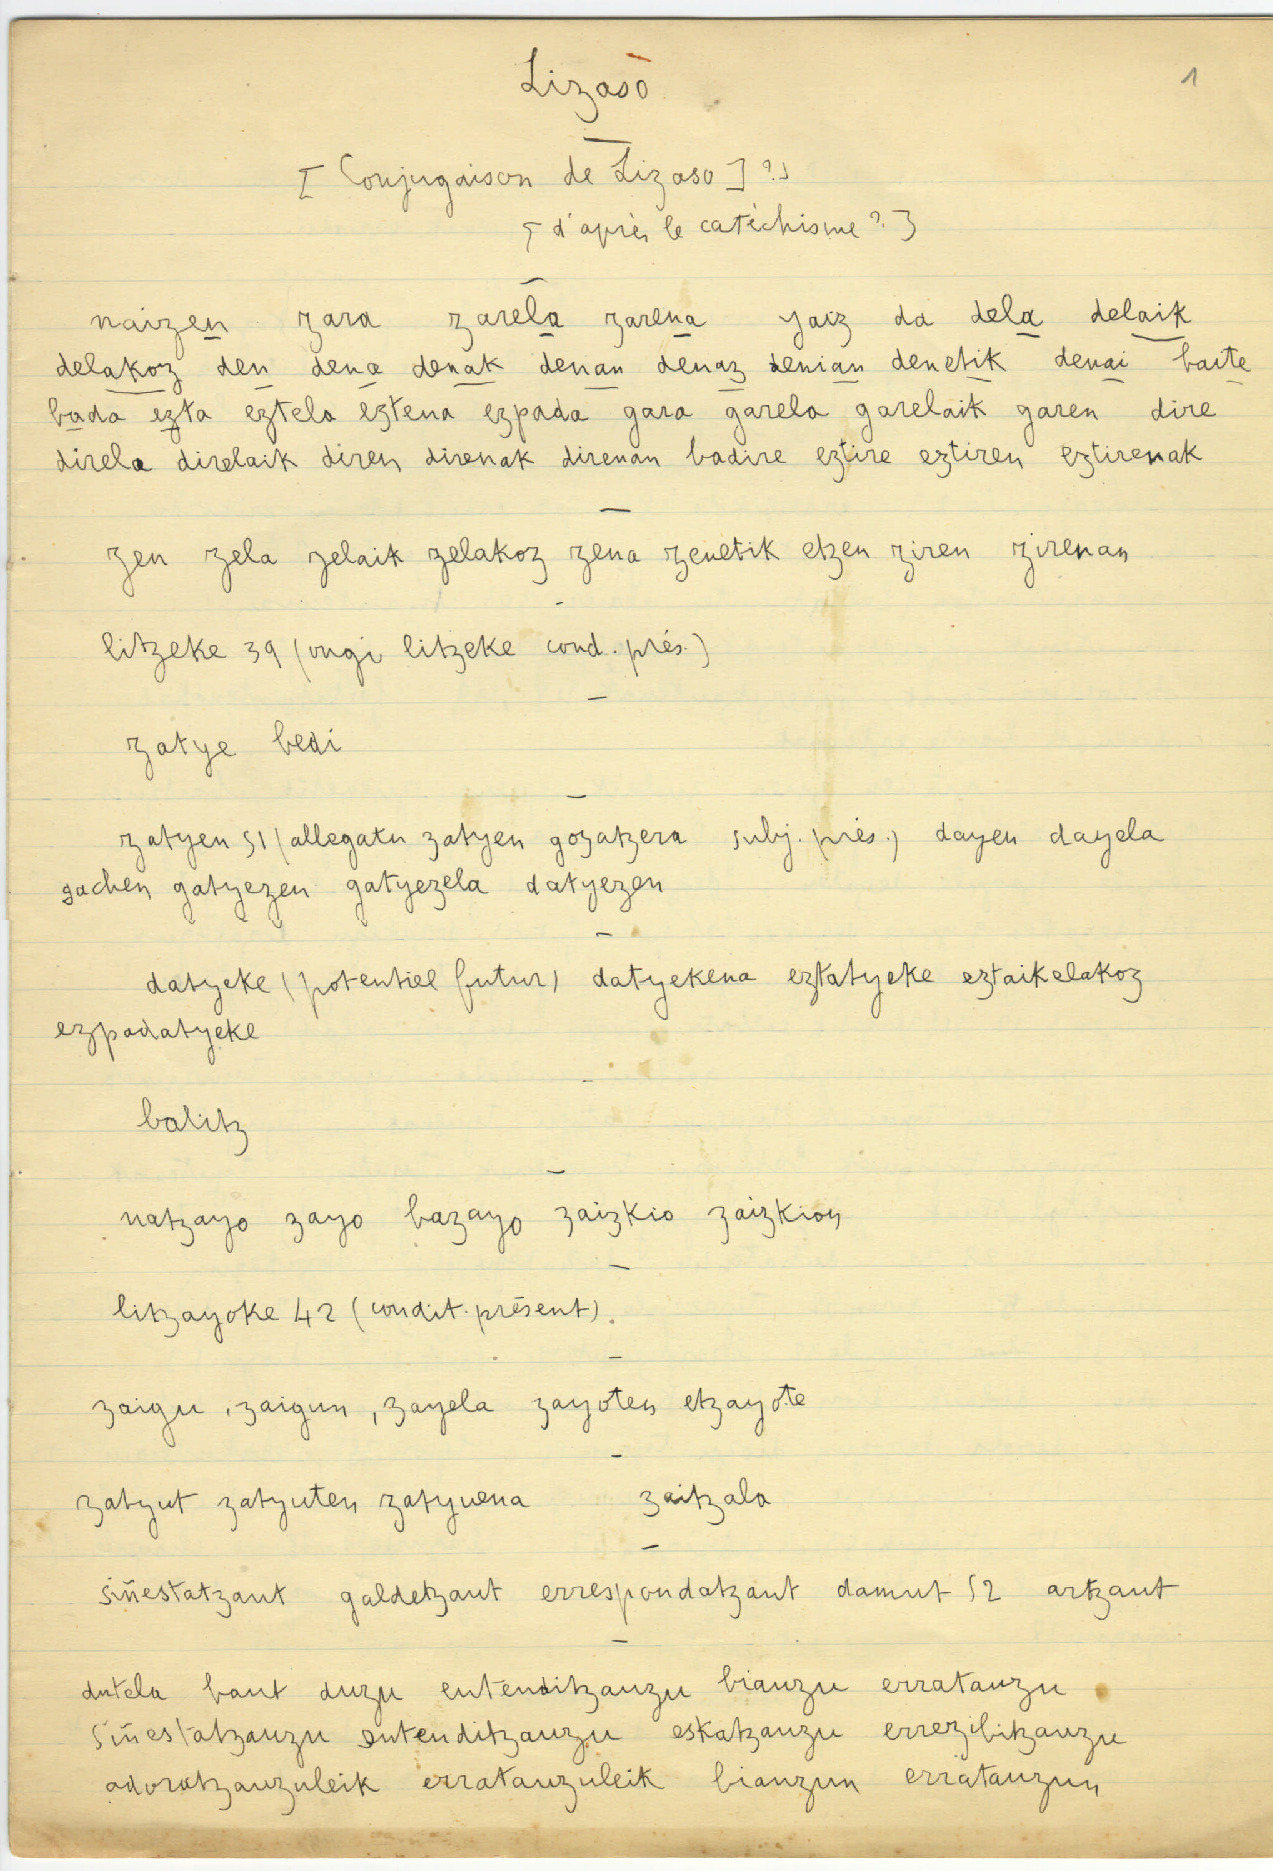 Lizaso
1
[Conjugaison de Lizaso] ?]
[d'après le catéchisme ?]
naizen zara zarela zarena yaiz da dela delaik
delakoz den dena denak denan denaz denian denetik denai baite
bada ezta eztela eztena ezpada gara garela garelaik garen dire
direla direlaik diren direnak direnan badire eztire eztiren eztirenak
zen zela zelaik zelakoz zena zenetik etzen ziren zirenan
litzeke 39 (ongi litzeke cond. prés.)
zatye bedi
zatyen 51 (allegatu zatyen gozatzera subj. prés.) dayen dayela
gachen gatyezen gatyezela datyezen
datyeke (potentiel futur) datyekena eztatyeke eztaikelakoz
ezpadatyeke
balitz
natzayo zayo bazayo zaizkio zaizkion
litzayoke 42 (condit. présent).
zaigu, zaigun, zayela zayoten etzayote
zatyut zatyuten zatyuena zaitzala
siñestatzaut galdetzaut errespondatzaut damut 52 artzaut
dutela baut duzu entenditzauzu biauzu erratauzu
siñestatzauzu entenditzauzu eskatzauzu errezibitzauzu
adoratzauzuleik erratauzuleik biauzun erratauzun